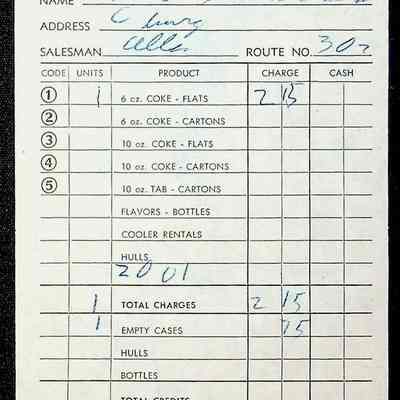 NAME
ADDRESS
SALESMAN Allen ROUTE NO. 302
CODE UNITS PRODUCT CHARGE CASH
1 1 6 oz. COKE - FLATS 2 15
2 6 oz. COKE - CARTONS
3 10 oz. COKE - FLATS
4 10 oz. COKE - CARTONS
5 10 oz. TAB - CARTONS
FLAVORS - BOTTLES
COOLER RENTALS
HULLS
2001
1 TOTAL CHARGES 2 15
1 EMPTY CASES 75
HULLS
BOTTLES
TOTAL CREDITS